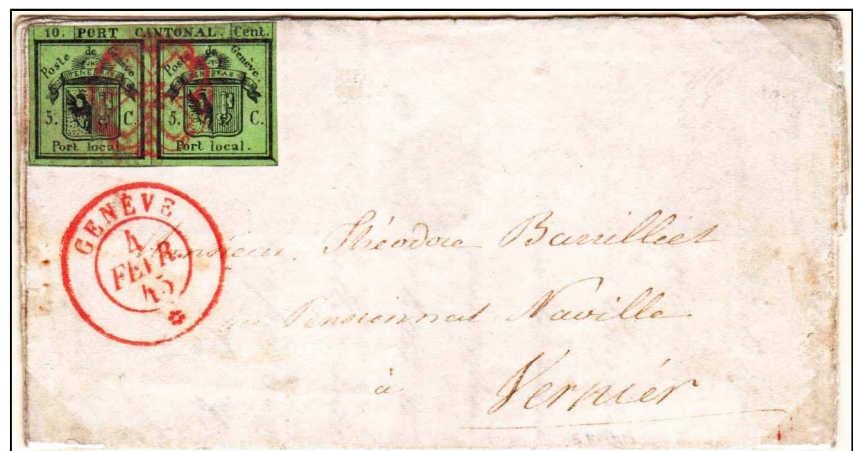 10. PORT CANTONAL. Cent.
Poste de Genève.
POST TENEBRAS
5. C.
Port local.
Poste de Genève.
POST TENEBRAS
5. C.
Port local.
GENÈVE
4
FEVR
45
Monsieur Théodore Barrilliet
au Pensionnat Naville
à Vernier